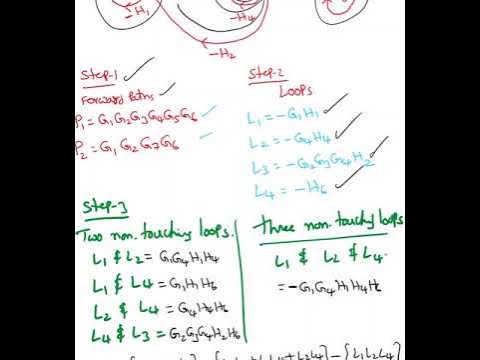 -H₁
-H₄
-H₂
Step-1
Forward Paths
P₁ = G₁G₂G₃G₄G₅G₆
P₂ = G₁G₂G₇G₆
Step-2
Loops
L₁ = -G₁H₁
L₂ = -G₄H₄
L₃ = -G₂G₃G₄H₂
L₄ = -H₆
Step-3
Two non.touching loops.
L₁ & L₂ = G₁G₄H₁H₄
L₁ & L₄ = G₁H₁H₆
L₂ & L₄ = G₄H₄H₆
L₄ & L₃ = G₂G₃G₄H₂H₆
Three non.touchy loops
L₁ & L₂ & L₄.
= -G₁G₄H₁H₄H₆